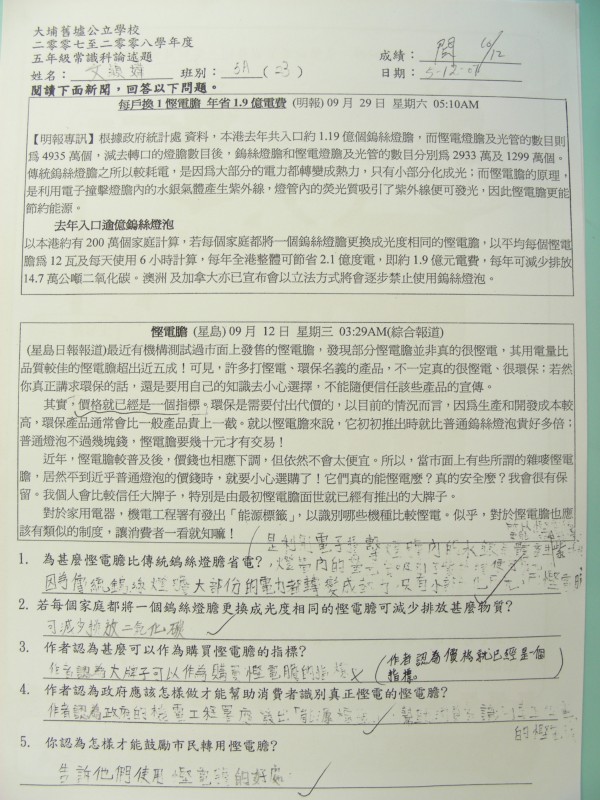 大埔舊墟公立學校
二零零七至二零零八學年度
五年級常識科論述題
成績：閱 10/12
姓名： 班別：5A（23） 日期：5-12-07
閱讀下面新聞，回答以下問題。
每戶換1慳電膽 年省1.9億電費 (明報) 09月 29日 星期六 05:10AM
【明報專訊】根據政府統計處 資料，本港去年共入口約1.19億個鎢絲燈膽，而慳電燈膽及光管的數目則
為4935萬個，減去轉口的燈膽數目後，鎢絲燈膽和慳電燈膽及光管的數目分別為2933萬及1299萬個。
傳統鎢絲燈膽之所以較耗電，是因為大部分的電力都轉變成熱力，只有小部分化成光；而慳電膽的原理，
是利用電子撞擊燈膽內的水銀氣體產生紫外線，燈管內的熒光質吸引了紫外線便可發光，因此慳電膽更能
節約能源。
去年入口逾億鎢絲燈泡
以本港約有200萬個家庭計算，若每個家庭都將一個鎢絲燈膽更換成光度相同的慳電膽，以平均每個慳電
膽為12瓦及每天使用6小時計算，每年全港整體可節省2.1億度電，即約1.9億元電費，每年可減少排放
14.7萬公噸二氧化碳。澳洲 及加拿大亦已宣布會以立法方式將會逐步禁止使用鎢絲燈泡。
慳電膽 (星島) 09月 12日 星期三 03:29AM(綜合報道)
(星島日報報道)最近有機構測試過市面上發售的慳電膽，發現部分慳電膽並非真的很慳電，其用電量比
品質較佳的慳電膽超出近五成！可見，許多打慳電、環保名義的產品，不一定真的很慳電、很環保；若然
你真正講求環保的話，還是要用自己的知識去小心選擇，不能隨便信任該些產品的宣傳。
其實，價格就已經是一個指標。環保是需要付出代價的，以目前的情況而言，因為生產和開發成本較
高，環保產品通常會比一般產品貴上一截。就以慳電膽來說，它初初推出時就比普通鎢絲燈泡貴好多倍；
普通燈泡不過幾塊錢，慳電膽要幾十元才有交易！
近年，慳電膽較普及後，價錢也相應下調，但依然不會太便宜。所以，當市面上有些所謂的雜嘜慳電
膽，居然不到近乎普通燈泡的價錢時，就要小心選購了！它們真的能慳電麼？真的安全麼？我會很有保
留。我個人會比較信任大牌子，特別是由最初慳電膽面世就已經有推出的大牌子。
對於家用電器，機電工程署有發出「能源標籤」，以識別哪些機種比較慳電。似乎，對於慳電膽也應
該有類似的制度，讓消費者一看就知嘛！
是利用電子撞擊燈膽內的水銀
1. 為甚麼慳電膽比傳統鎢絲燈膽省電？
因為傳統鎢絲燈膽大部份的電力都轉變成
2. 若每個家庭都將一個鎢絲燈膽更換成光度相同的慳電膽可減少排放甚麼物質？
可減少排放二氧化碳
3. 作者認為甚麼可以作為購買慳電膽的指標？
作者認為大牌子可以作為購買慳電膽的指標 (作者認為價格就已經是一個
指標。
4. 作者認為政府應該怎樣做才能幫助消費者識別真正慳電的慳電膽？
作者認為政府的機電工程署應發出「能源標籤」，幫助
的慳電
5. 你認為怎樣才能鼓勵市民轉用慳電膽？
告訴他們使用慳電膽的好處